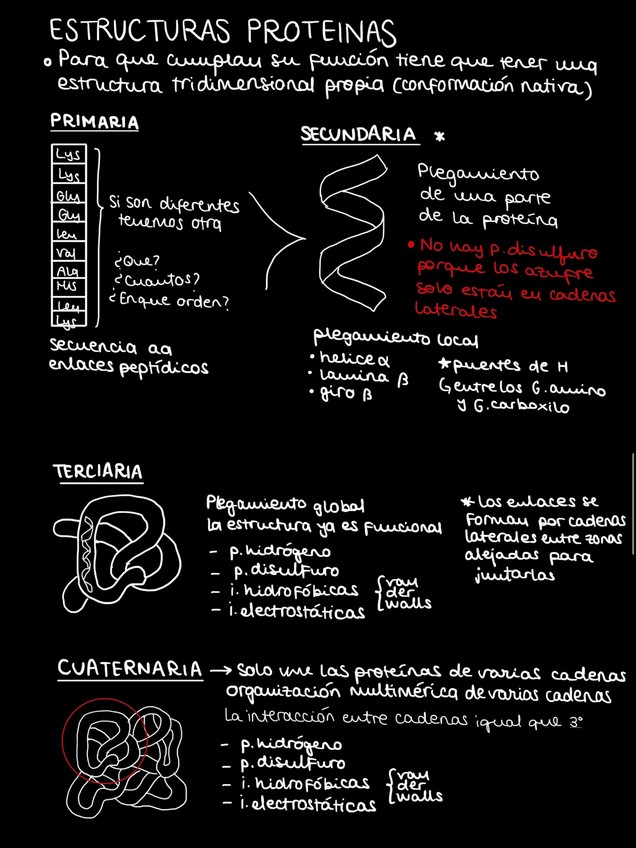 ESTRUCTURAS PROTEINAS
• Para que cumplan su función tiene que tener una
estructura tridimensional propia (conformación nativa)
PRIMARIA
Lys
Lys
Glu
Leu
Val
Ala
His
Leu
Lys
Si son diferentes
tenemos otra
¿Que?
¿Cuantos?
¿En que orden?
secuencia aa
enlaces peptídicos
SECUNDARIA *
Plegamiento
de una parte
de la proteína
• No hay p. disulfuro
porque los azufre
solo están en cadenas
laterales
plegamiento local
• helice α
• lamina β
• giro β
* puentes de H
↳ entre los G. amino
y G. carboxilo
TERCIARIA
Plegamiento global
la estructura ya es funcional
- p. hidrógeno
- p. disulfuro
- i. hidrofóbicas
- i. electrostáticas
{ van
der
walls
* los enlaces se
forman por cadenas
laterales entre zonas
alejadas para
juntarlas
CUATERNARIA → Solo une las proteínas de varias cadenas
organización multimérica de varias cadenas
La interacción entre cadenas igual que 3º
- p. hidrógeno
- p. disulfuro
- i. hidrofóbicas
- i. electrostáticas
{ van
der
walls